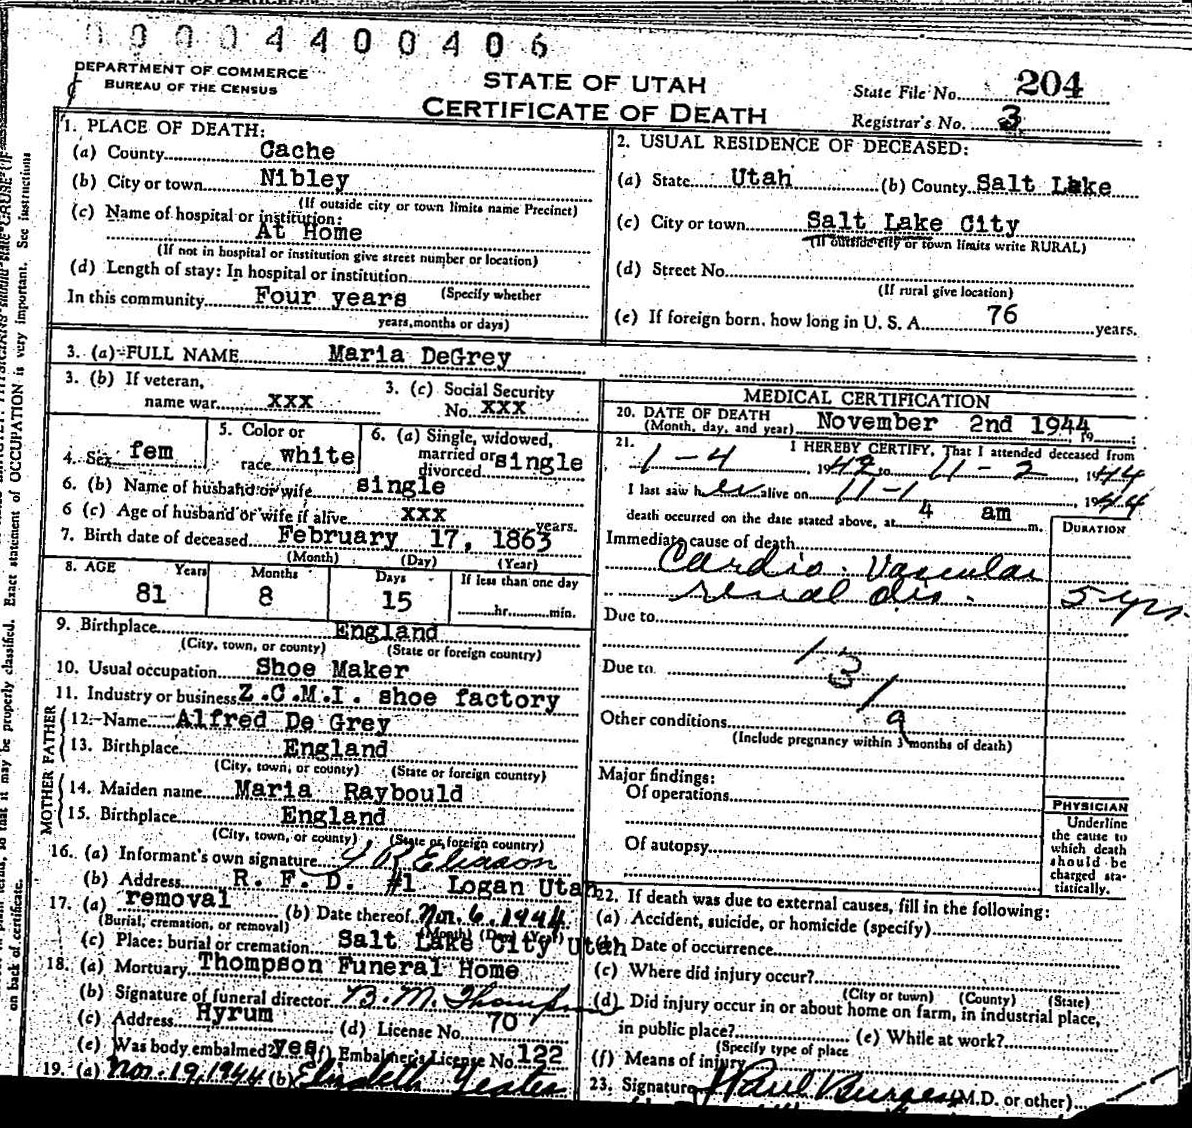 00004400406
DEPARTMENT OF COMMERCE
BUREAU OF THE CENSUS
STATE OF UTAH
CERTIFICATE OF DEATH
State File No. 204
Registrar's No. 3
1. PLACE OF DEATH:
(a) County Cache
(b) City or town Nibley
(If outside city or town limits name Precinct)
(c) Name of hospital or institution:
At Home
(If not in hospital or institution give street number or location)
(d) Length of stay: In hospital or institution
(Specify whether
In this community Four years
years, months or days)
2. USUAL RESIDENCE OF DECEASED:
(a) State Utah (b) County Salt Lake
(c) City or town Salt Lake City
(If outside city or town limits write RURAL)
(d) Street No.
(If rural give location)
(e) If foreign born, how long in U. S. A. 76 years.
3. (a) FULL NAME Maria DeGrey
3. (b) If veteran,
name war xxx
3. (c) Social Security
No. xxx
4. Sex fem
5. Color or
race white
6. (a) Single, widowed,
married or
divorced single
6. (b) Name of husband or wife single
6 (c) Age of husband or wife if alive xxx years.
7. Birth date of deceased February 17, 1863
(Month) (Day) (Year)
8. AGE Years Months Days If less than one day
81 8 15 hr. min.
9. Birthplace England
(City, town, or county) (State or foreign country)
10. Usual occupation Shoe Maker
11. Industry or business Z.C.M.I. shoe factory
FATHER
12. Name Alfred De Grey
13. Birthplace England
(City, town, or county) (State or foreign country)
MOTHER
14. Maiden name Maria Raybould
15. Birthplace England
(City, town, or county) (State or foreign country)
16. (a) Informant's own signature Eliason
(b) Address R. F. D. #1 Logan Utah
17. (a) removal (b) Date thereof Nov. 6, 1944
(Burial, cremation, or removal) (Month) (Day) (Year)
(c) Place: burial or cremation Salt Lake City Utah
18. (a) Mortuary Thompson Funeral Home
(b) Signature of funeral director B. M. Thompson
(c) Address Hyrum (d) License No. 70
(e) Was body embalmed? yes (f) Embalmer's License No. 122
19. (a) Nov. 19, 1944 (b) Elizabeth
MEDICAL CERTIFICATION
20. DATE OF DEATH
(Month, day, and year) November 2nd 1944, 19
21. I HEREBY CERTIFY, That I attended deceased from
1-4 1942 to 11-2, 1944
I last saw her alive on 11-1, 1944
death occurred on the date stated above, at 4 am m.
DURATION
Immediate cause of death
Cardio. Vascular
renal dis. 5 yrs.
Due to
131
Due to
a
Other conditions
(Include pregnancy within 3 months of death)
Major findings:
Of operations
Of autopsy
PHYSICIAN
Underline
the cause to
which death
should be
charged sta-
tistically.
22. If death was due to external causes, fill in the following:
(a) Accident, suicide, or homicide (specify)
(b) Date of occurrence
(c) Where did injury occur?
(City or town) (County) (State)
(d) Did injury occur in or about home on farm, in industrial place,
in public place? (e) While at work?
(Specify type of place
(f) Means of injury
23. Signature Paul Burgess (M.D. or other)
OCCUPATION is very important. See instructions
so that it may be properly classified. Exact statement of
on back of certificate.